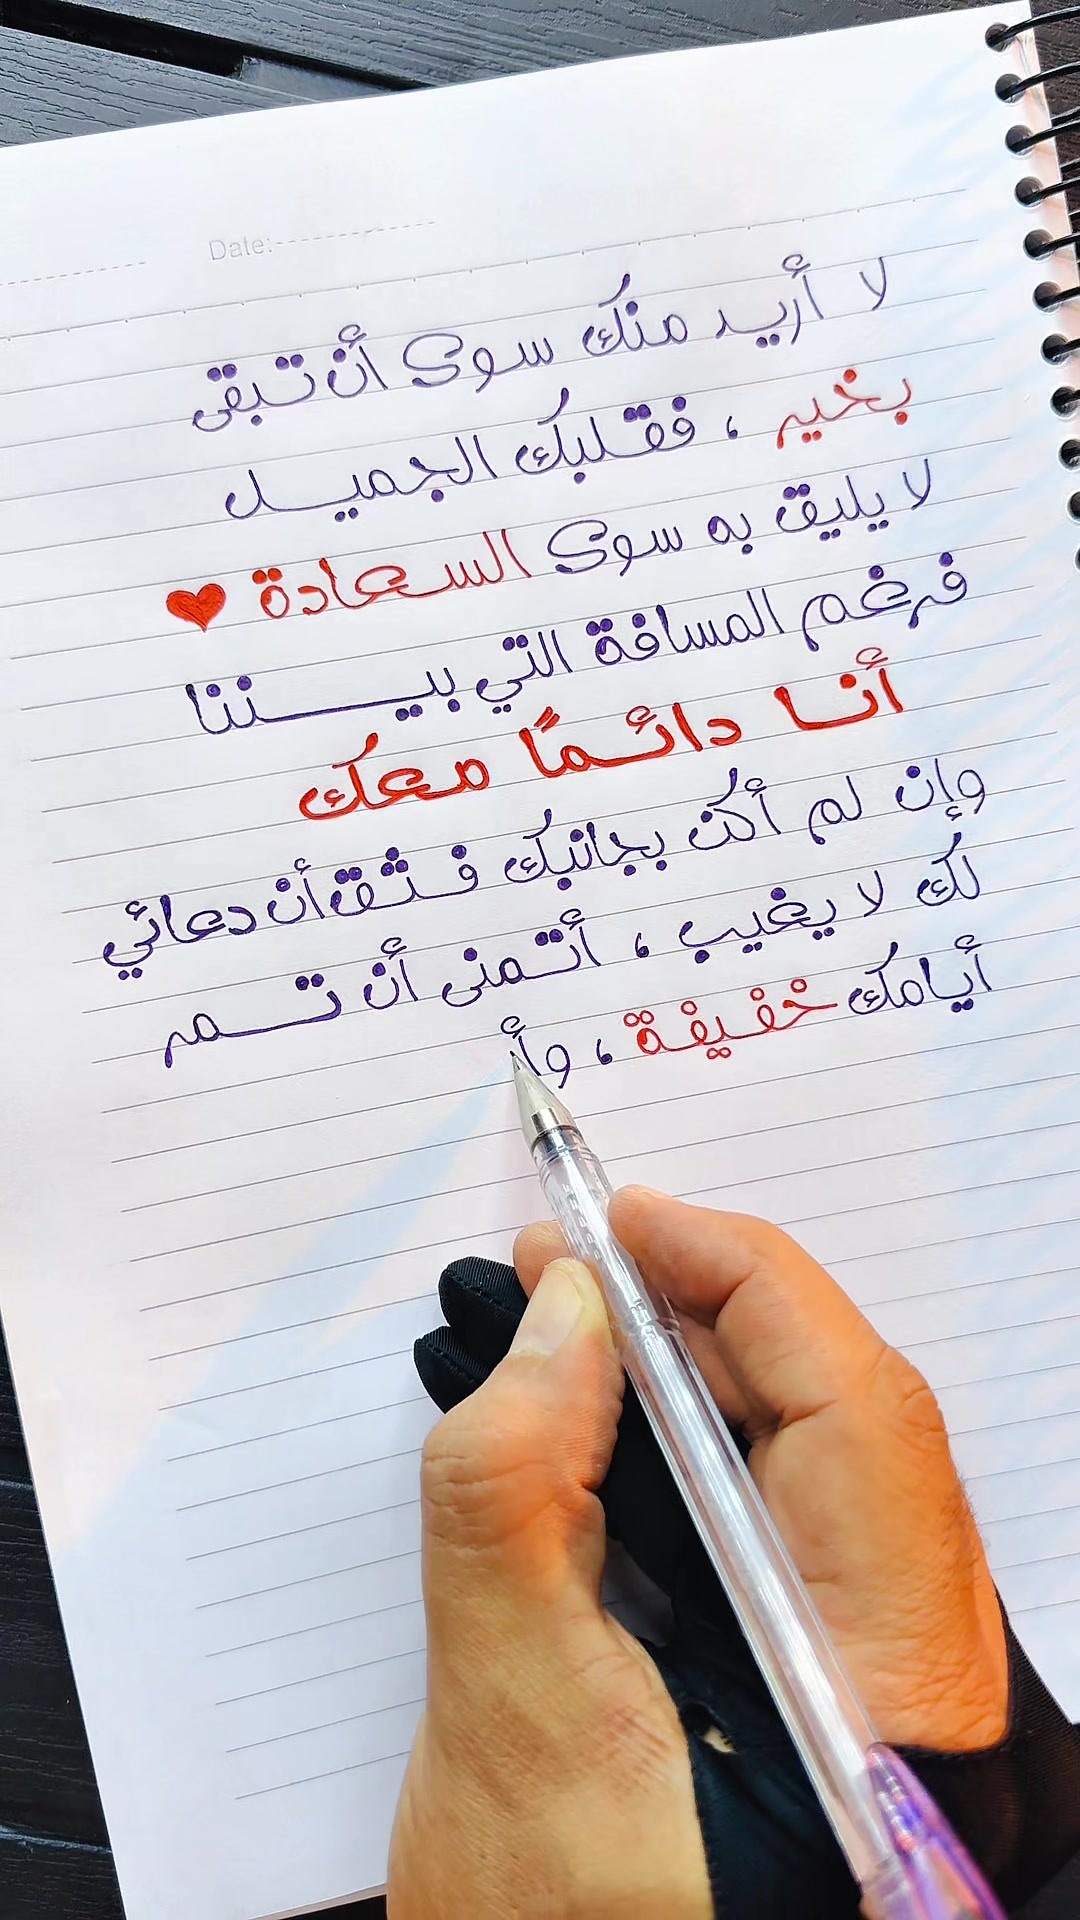 Date:
لا أريد منك سوى أن تبقى
بخير ، فقلبك الجميل
لا يليق به سوى السعادة ♥
فرغم المسافة التي بيننا
أنا دائمًا معك
وإن لم أكن بجانبك فثق أن دعائي
لك لا يغيب ، أتمنى أن تمر
أيامك خفيفة ، وأ